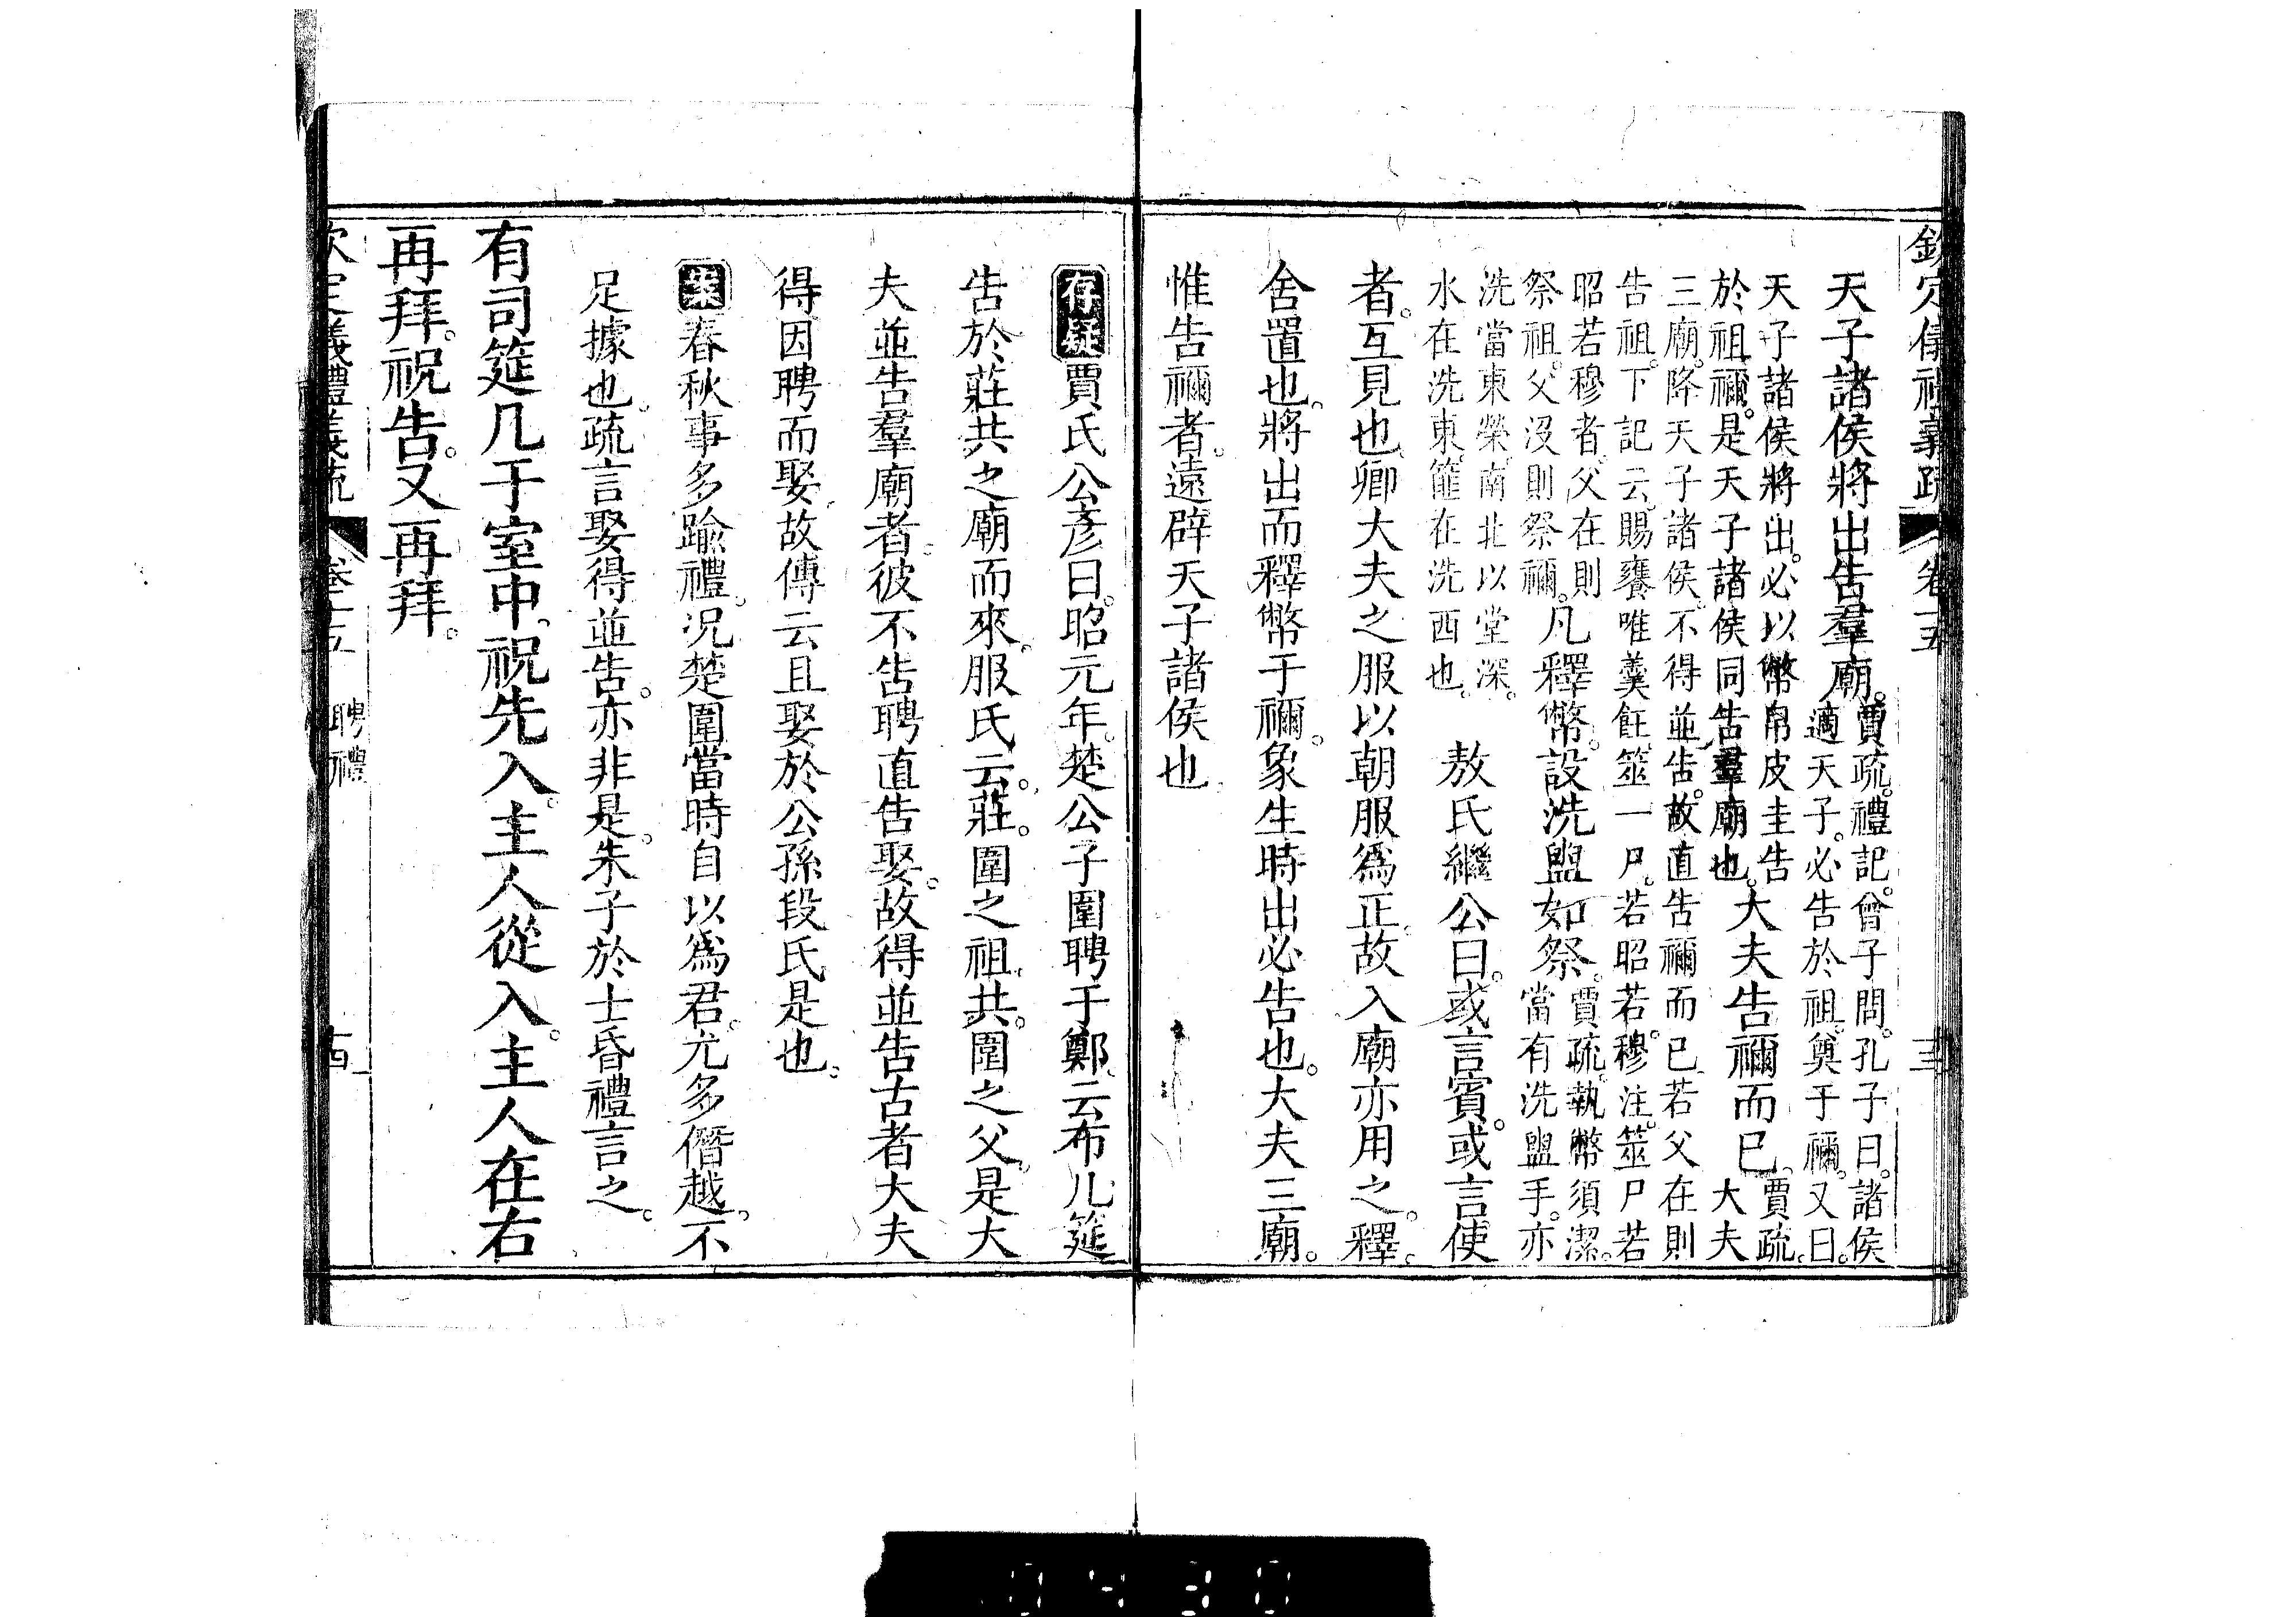 欽定儀禮義疏 卷十五
天子諸侯將出告羣廟。賈疏。禮記。曾子問。孔子曰。諸侯
適天子。必告於祖。奠于禰。又曰。
天子諸侯將出。必以幣帛皮圭告
於祖禰。是天子諸侯同告羣廟也。大夫告禰而已。賈疏。
大夫
三廟。降天子諸侯。不得並告。故直告禰而已。若父在則
告祖。下記云。賜饔唯羹飪。筮一尸。若昭若穆。注。筮尸若
昭若穆者。父在則
祭祖。父沒則祭禰。凡釋幣。設洗盥如祭。賈疏。執幣須潔。
當有洗盥手。亦
洗當東榮。南北以堂深。
水在洗東。篚在洗西也。 敖氏繼公曰。或言賓。或言使
者。互見也。卿大夫之服以朝服爲正。故入廟亦用之。釋。
舍置也。將出而釋幣于禰。象生時出必告也。大夫三廟。
惟告禰者。遠辟天子諸侯也
存疑賈氏公彥曰。昭元年。楚公子圍聘于鄭。云布几筵
告於莊共之廟而來。服氏云。莊。圍之祖。共。圍之父。是大
夫並告羣廟者。彼不告聘直告娶。故得並告古者大夫
得因聘而娶。故傳云且娶於公孫段氏是也。
案春秋事多踰禮。况楚圍當時自以爲君。尤多僭越。不
足據也。疏言娶得並告。亦非是。朱子於士昏禮言之。
有司筵几于室中。祝先入。主人從入。主人在右
再拜。祝告。又再拜。
欽定儀禮義疏 卷十五 聘禮 十四